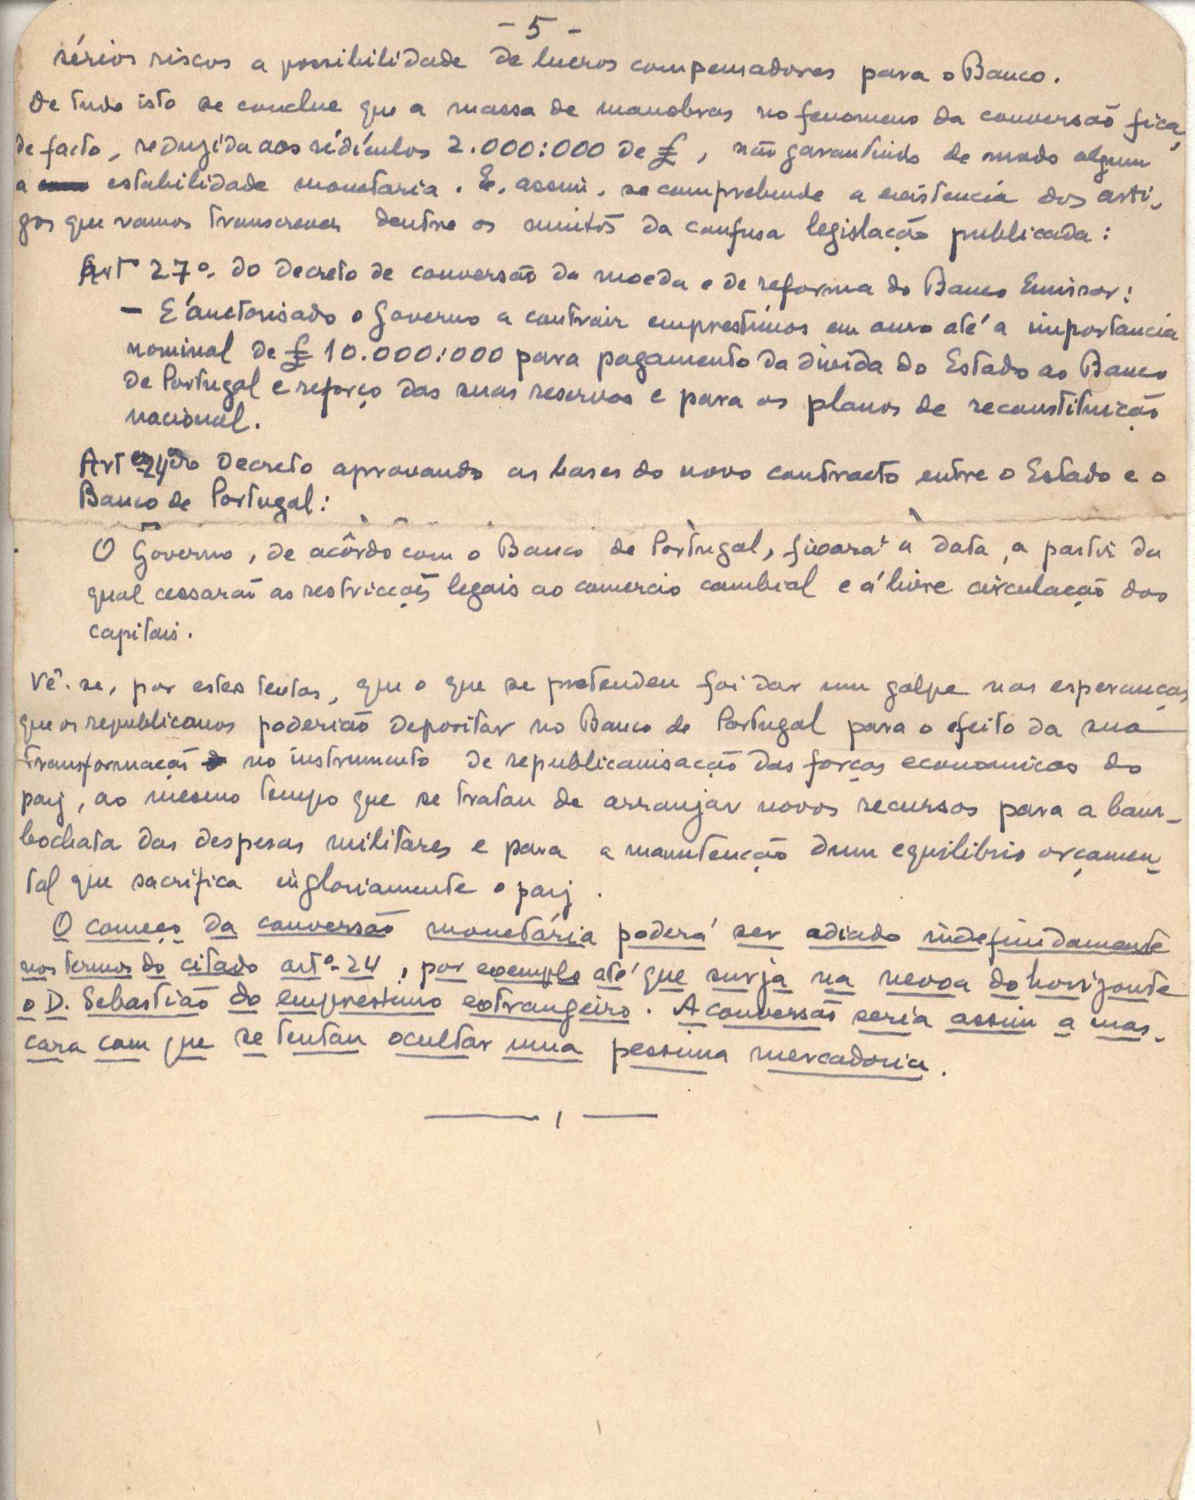 - 5 -
sérios riscos a possibilidade de lucros compensadores para o Banco.
De tudo isto se conclue que a massa de manobras no fenomeno da conversão fica,
de facto, reduzida aos ridículos 2.000:000 de £, não garantindo de modo algum
a estabilidade monetaria. E, assim, se comprehende a existencia dos arti-
gos que vamos transcrever dentre os muitos da confusa legislação publicada:
Artº 27º. do Decreto de conversão da moeda e de reforma do Banco Emissor:
— E' auctorisado o Governo a contrair emprestimos em ouro até a importancia
nominal de £ 10.000:000 para pagamento da divida do Estado ao Banco
de Portugal e reforço das suas reservas e para os planos de reconstituição
nacional.
Artº 24º do Decreto aprovando as bases do novo contracto entre o Estado e o
Banco de Portugal:
O Governo, de acôrdo com o Banco de Portugal, fixará a data, a partir da
qual cessarão as restricções legais ao comercio cambial e á livre circulação dos
capitais.
Vê-se, por estes textos, que o que se pretendeu foi dar um golpe nas esperanças
que os republicanos poderião depositar no Banco de Portugal para o efeito da sua
transformação no instrumento de republicanisação das forças economicas do
paiz, ao mesmo tempo que se tratou de arranjar novos recursos para a bam-
bochata das despesas militares e para a manutenção dum equilibrio orçamen-
tal que sacrifica ingloriamente o paiz.
O começo da conversão monetária poderá ser adiado indefinidamente
nos termos do citado artº-24, por exemplo até que surja na nevoa do horizonte
o D. Sebastião do emprestimo extrangeiro. A conversão seria assim a mas-
cara com que se tentou ocultar uma pessima mercadoria.